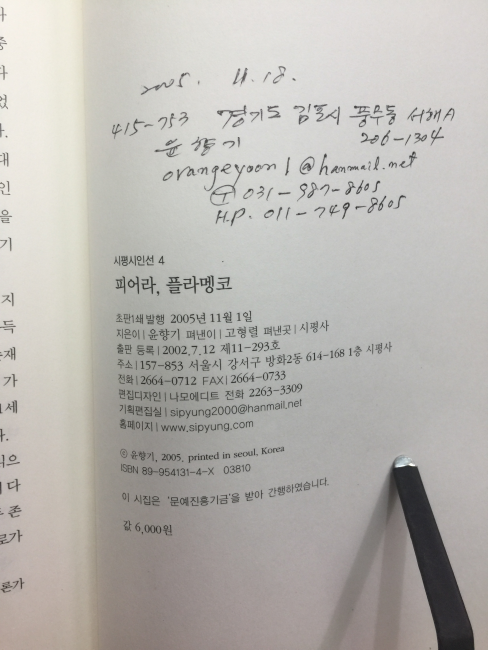 2005. 11. 18.
415-753 경기도 김포시 풍무동 서해A
206-1304
윤향기
orangeyoon1@hanmail.net
T 031-987-8605
H.P. 011-749-8605
시평시인선 4
피어라, 플라멩코
초판1쇄 발행 2005년 11월 1일
지은이 | 윤향기 펴낸이 | 고형렬 펴낸곳 | 시평사
출판 등록 | 2002.7.12 제11-293호
주소 | 157-853 서울시 강서구 방화2동 614-168 1층 시평사
전화 | 2664-0712 FAX | 2664-0733
편집디자인 | 나모에디트 전화 2263-3309
기획편집실 | sipyung2000@hanmail.net
홈페이지 | www.sipyung.com
ⓒ 윤향기, 2005. printed in seoul, Korea
ISBN 89-954131-4-X 03810
이 시집은 '문예진흥기금'을 받아 간행하였습니다.
값 6,000원